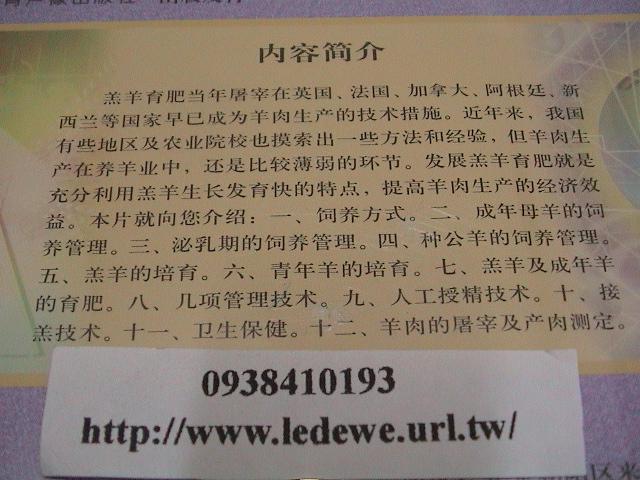 内容简介
羔羊育肥当年屠宰在英国、法国、加拿大、阿根廷、新
西兰等国家早已成为羊肉生产的技术措施。近年来，我国
有些地区及农业院校也摸索出一些方法和经验，但羊肉生
产在养羊业中，还是比较薄弱的环节。发展羔羊育肥就是
充分利用羔羊生长发育快的特点，提高羊肉生产的经济效
益。本片就向您介绍：一、饲养方式。二、成年母羊的饲
养管理。三、泌乳期的饲养管理。四、种公羊的饲养管理。
五、羔羊的培育。六、青年羊的培育。七、羔羊及成年羊
的育肥。八、几项管理技术。九、人工授精技术。十、接
羔技术。十一、卫生保健。十二、羊肉的屠宰及产肉测定。
0938410193
http://www.ledewe.url.tw/